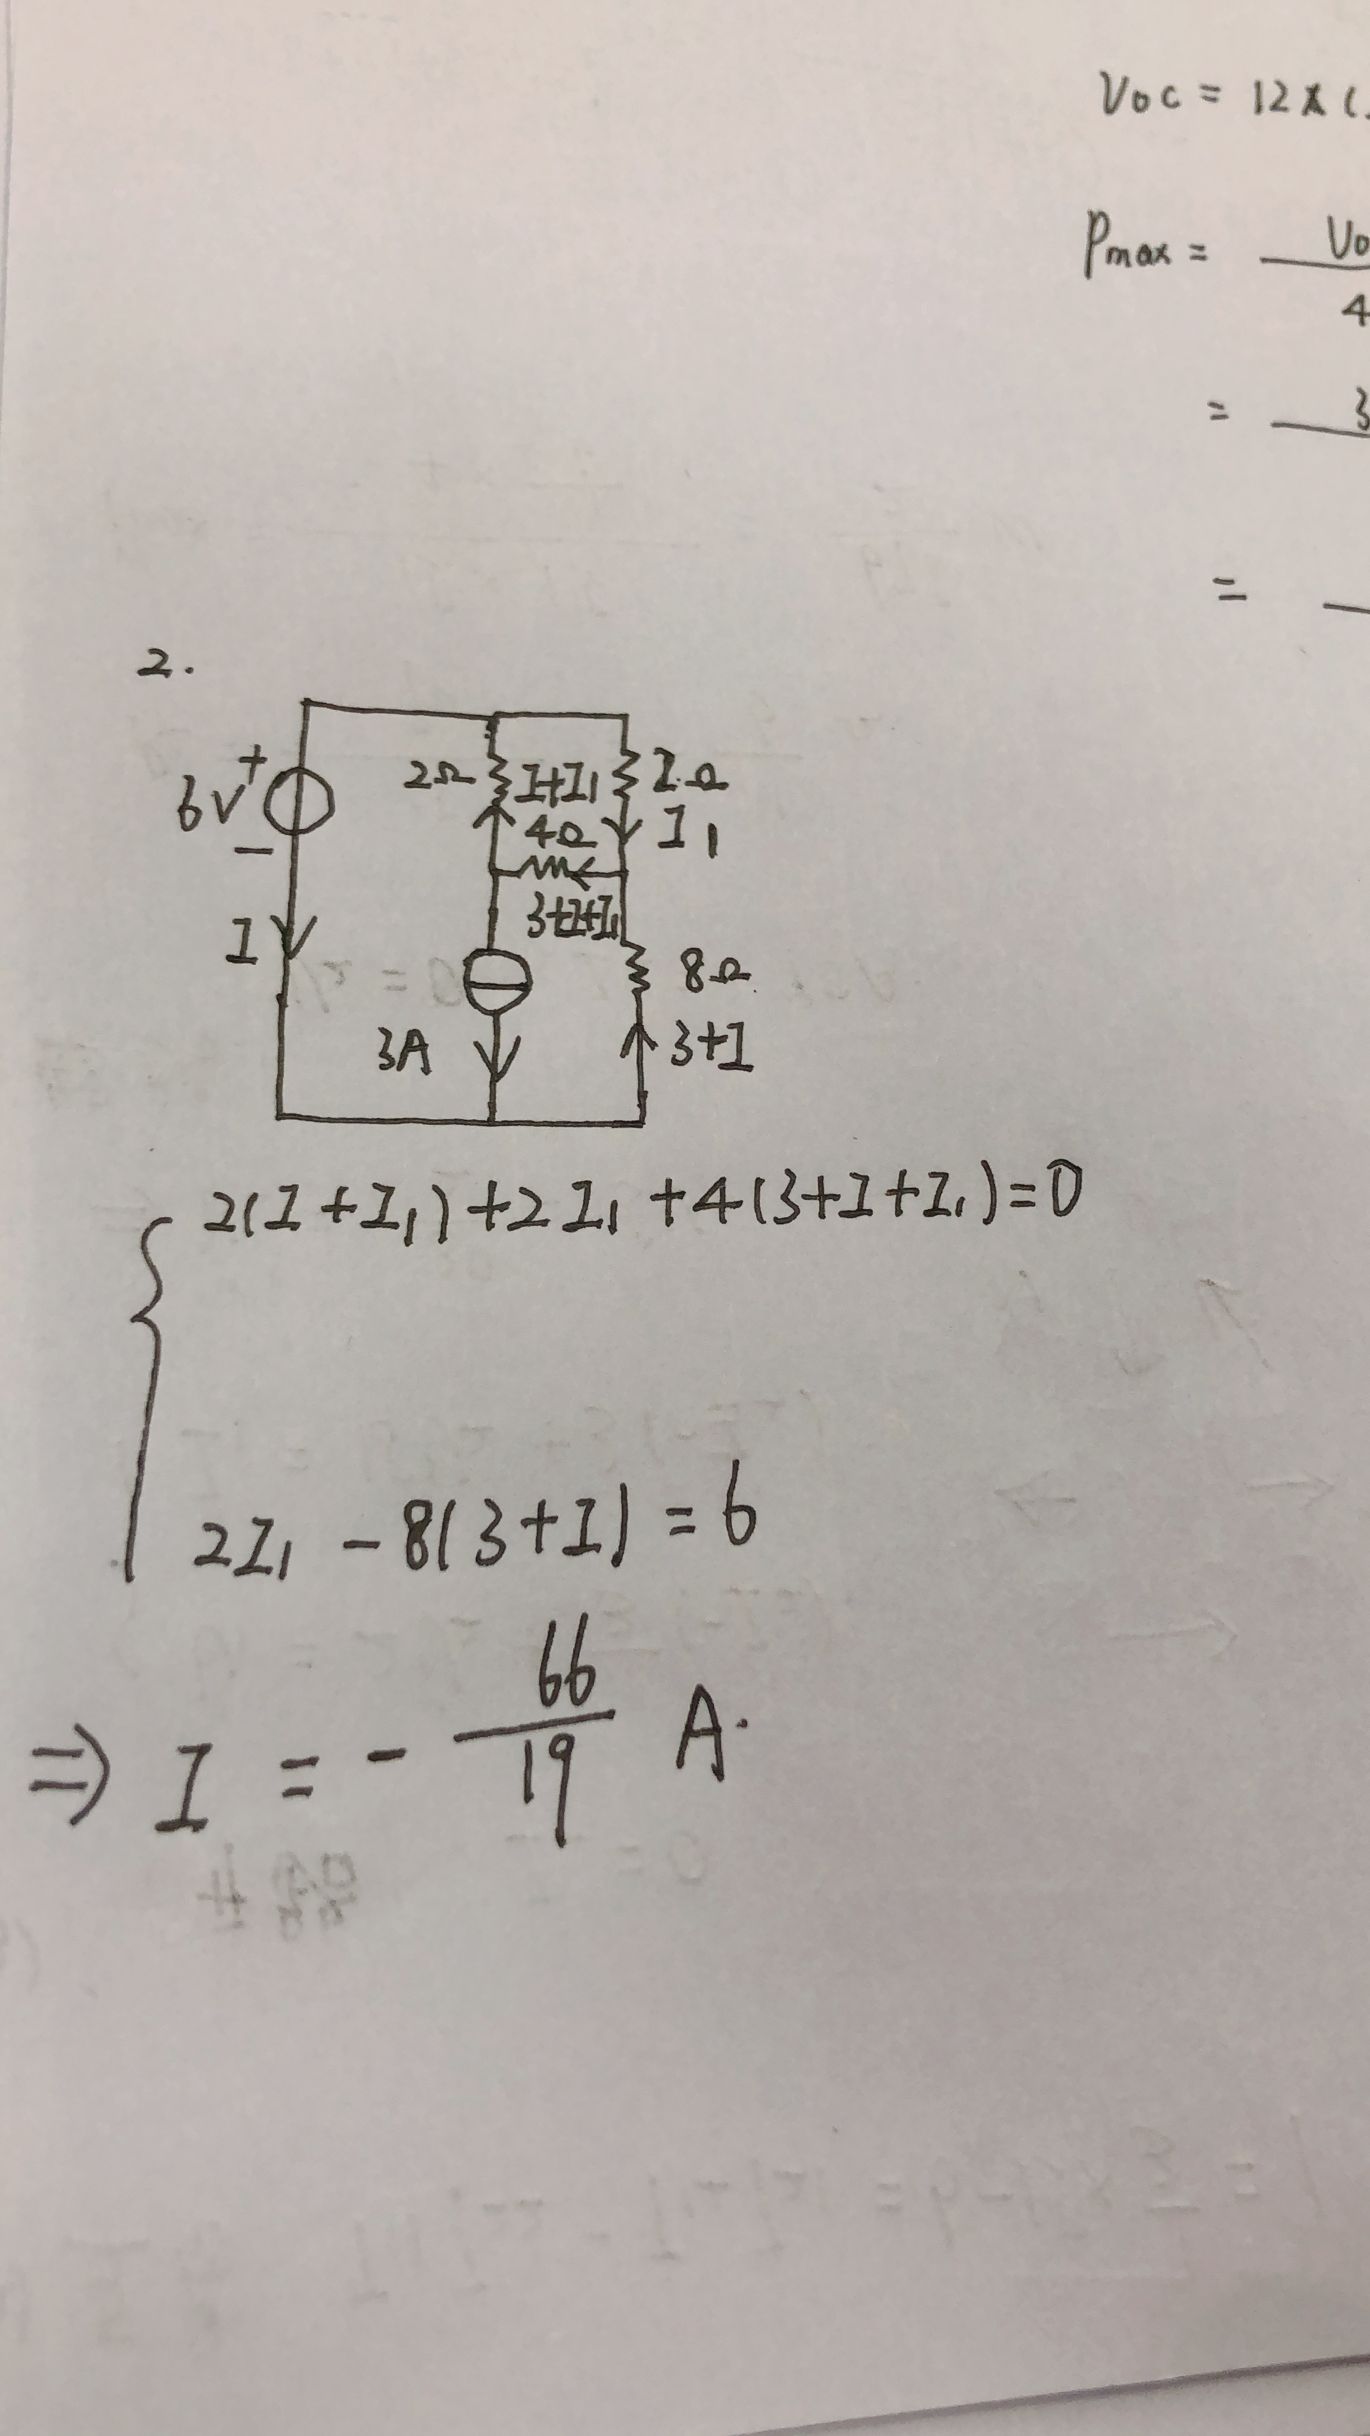 Voc = 12 × (
Pmax = Vo
4
= 3
=
2.
6V + −
2Ω I+I₁ 2Ω
4Ω I₁
3+I+I₁
I 8Ω
3A 3+I
2(I+I₁)+2I₁+4(3+I+I₁)=0
2I₁ −8(3+I) = 6
⇒ I = − 66/19 A.